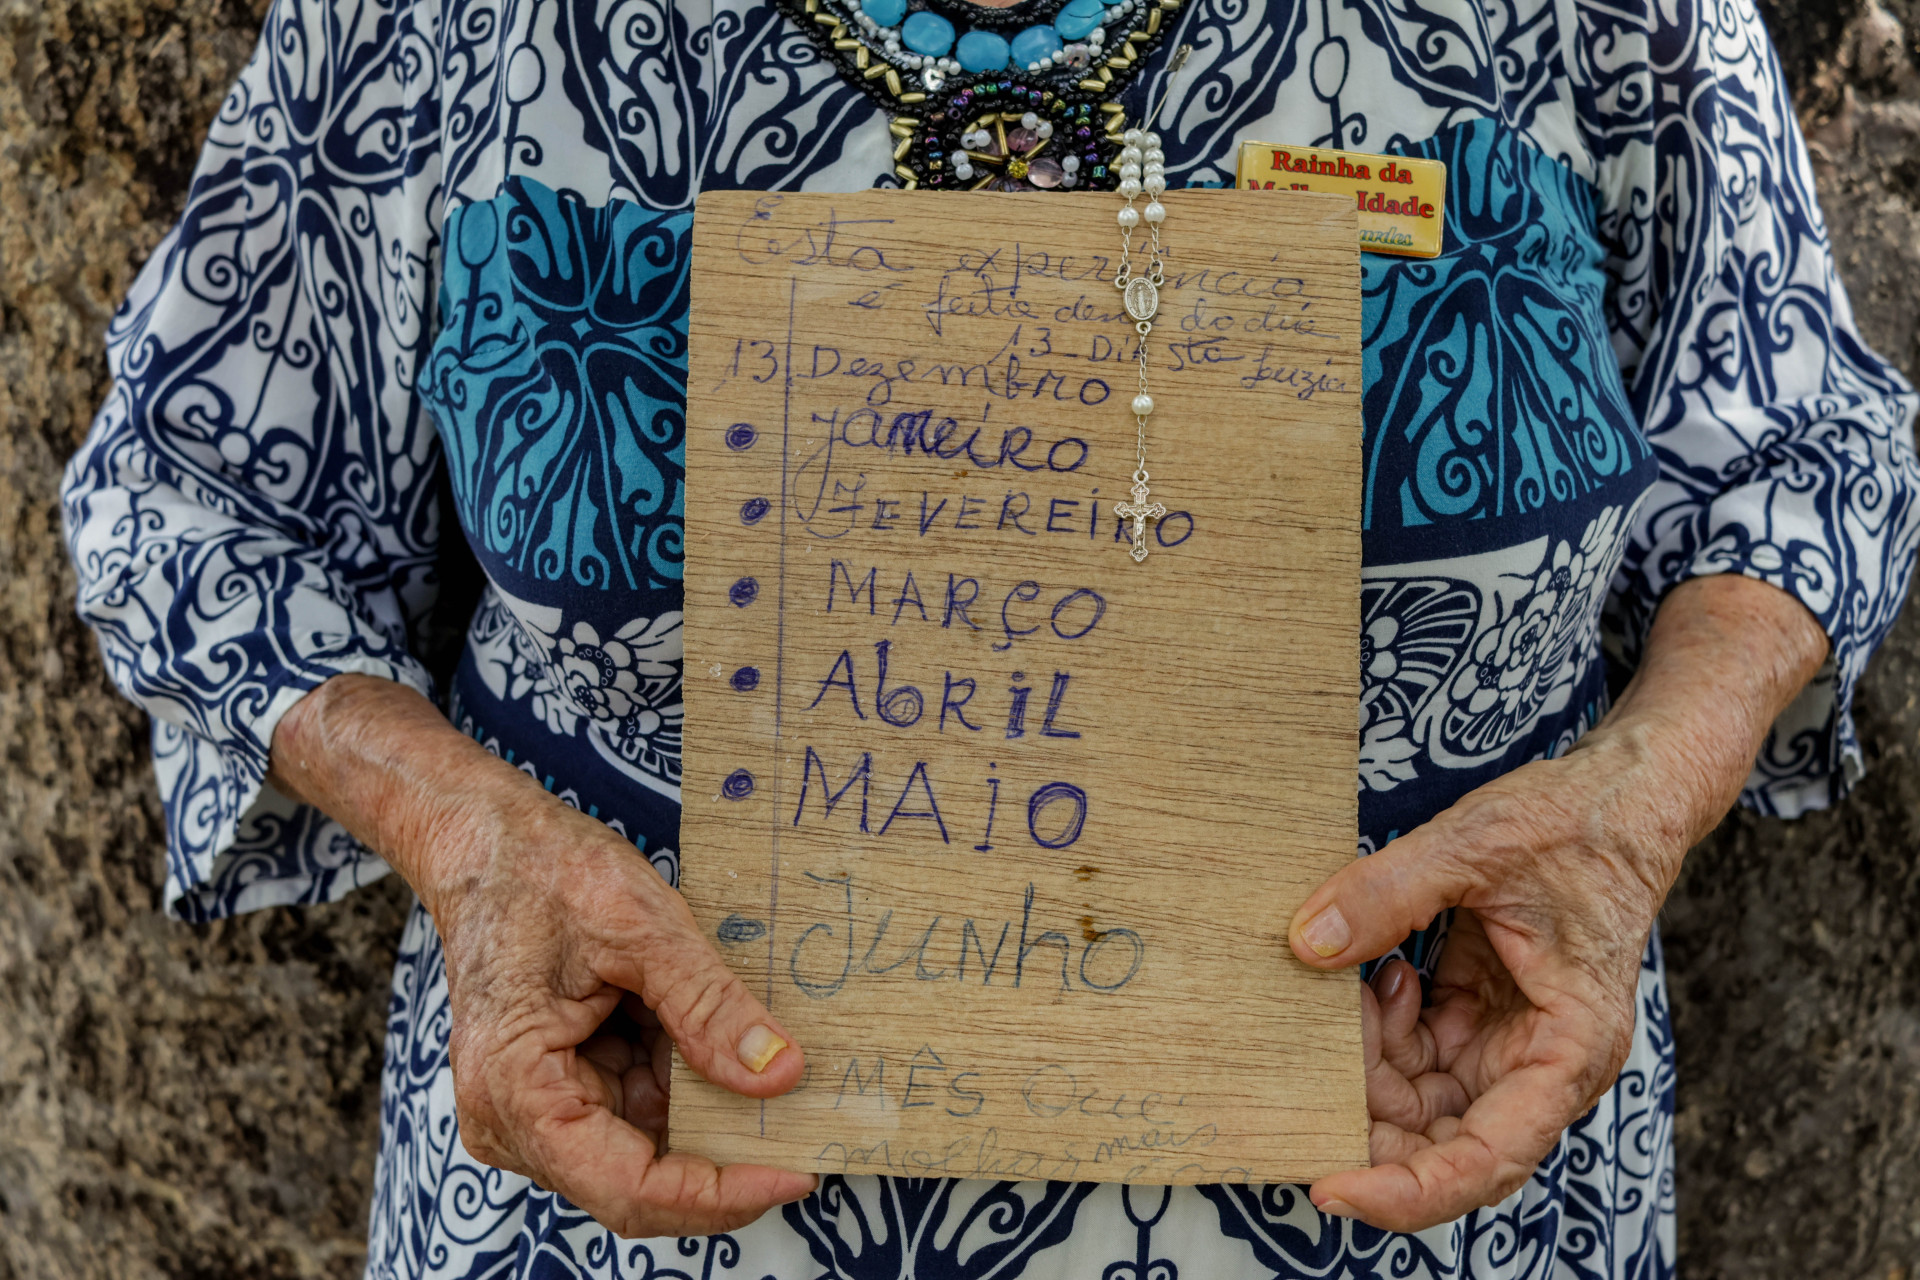 Rainha da
Idade
Esta
é feita do dia
13 Dia Sta Luzia
13 Dezembro
Janeiro
FEVEREiRO
MARÇO
AbRiL
MAiO
JuNhO
MÊS Que
molhar mais